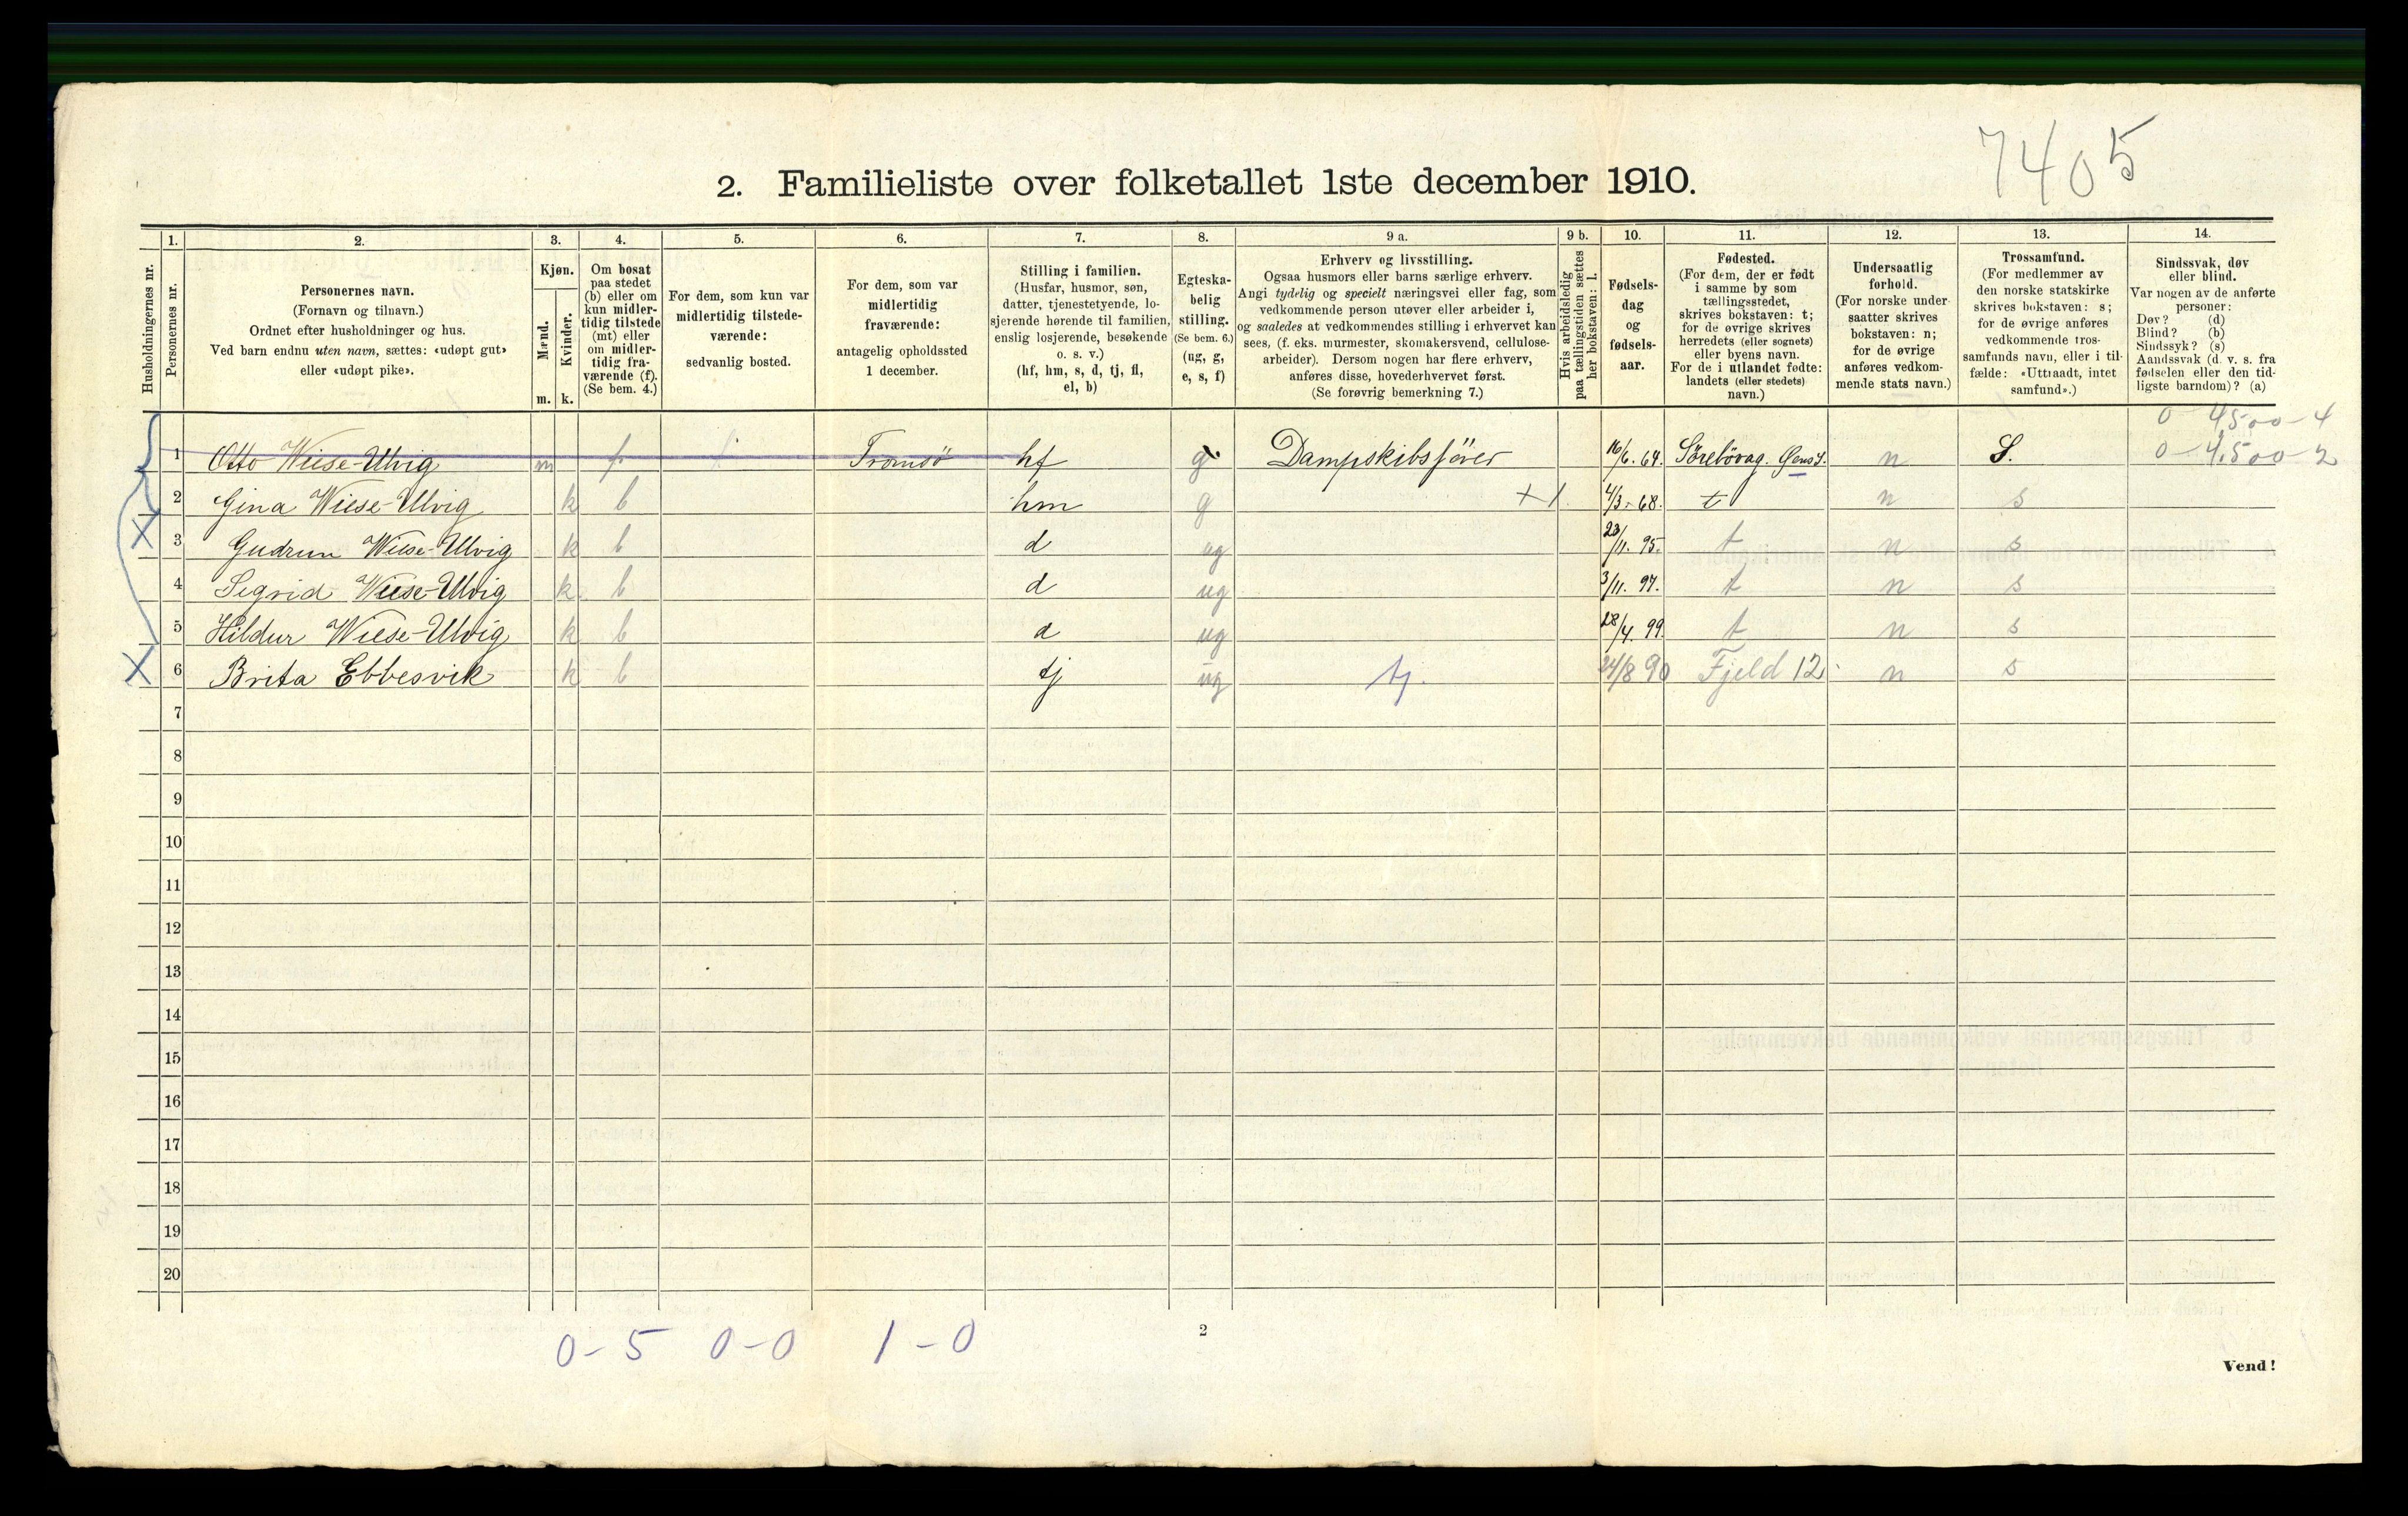 7405
2. Familieliste over folketallet 1ste december 1910.
Husholdningernes nr.
1.
Personernes nr.
2.
Personernes navn.
(Fornavn og tilnavn.)
Ordnet efter husholdninger og hus.
Ved barn endnu uten navn, sættes: «udøpt gut»
eller «udøpt pike».
3.
Kjøn.
Mænd.
Kvinder.
m. k.
4.
Om bosat
paa stedet
(b) eller om
kun midler-
tidig tilstede
(mt) eller
om midler-
tidig fra-
værende (f).
(Se bem. 4.)
5.
For dem, som kun var
midlertidig tilstede-
værende:
sedvanlig bosted.
6.
For dem, som var
midlertidig
fraværende:
antagelig opholdssted
1 december.
7.
Stilling i familien.
(Husfar, husmor, søn,
datter, tjenestetyende, lo-
sjerende hørende til familien,
enslig losjerende, besøkende
o. s. v.)
(hf, hm, s, d, tj, fl,
el, b)
8.
Egteska-
belig
stilling.
(Se bem. 6.)
(ug, g,
e, s, f)
9 a.
Erhverv og livsstilling.
Ogsaa husmors eller barns særlige erhverv.
Angi tydelig og specielt næringsvei eller fag, som
vedkommende person utøver eller arbeider i,
og saaledes at vedkommendes stilling i erhvervet kan
sees, (f. eks. murmester, skomakersvend, cellulose-
arbeider). Dersom nogen har flere erhverv,
anføres disse, hovederhvervet først.
(Se forøvrig bemerkning 7.)
9 b.
Hvis arbeidsledig
paa tællingstiden sættes
her bokstaven: l.
10.
Fødsels-
dag
og
fødsels-
aar.
11.
Fødested.
(For dem, der er født
i samme by som
tællingsstedet,
skrives bokstaven: t;
for de øvrige skrives
herredets (eller sognets)
eller byens navn.
For de i utlandet fødte:
landets (eller stedets)
navn.)
12.
Undersaatlig
forhold.
(For norske under-
saatter skrives
bokstaven: n;
for de øvrige
anføres vedkom-
mende stats navn.)
13.
Trossamfund.
(For medlemmer av
den norske statskirke
skrives bokstaven: s;
for de øvrige anføres
vedkommende tros-
samfunds navn, eller i til-
fælde: «Uttraadt, intet
samfund».)
14.
Sindssvak, døv
eller blind.
Var nogen av de anførte
personer:
Døv? (d)
Blind? (b)
Sindssyk? (s)
Aandssvak (d. v. s. fra
fødselen eller den tid-
ligste barndom)? (a)
0 - 4500 - 4
1 Otto Wiese-Ulvig m f Tromsö hf g Dampskibsförer 16/6. 64. Sörebövag. n S. 0 - 4500 - 2
2 Gina Wiese-Ulvig k b hm g + 1 4/3. 68. t n s
X 3 Gudrun Wiese-Ulvig k b d ug 23/11. 95. t n s
4 Sigrid Wiese-Ulvig k b d ug 3/11. 97. t n s
5 Hildur Wiese-Ulvig k b d ug 28/4. 99. t n s
X 6 Brita Ebbesvik k b tj ug tj. 24/8 90 Fjeld 12 n s
7
8
9
10
11
12
13
14
15
16
17
18
19
20
0 - 5 0 - 0 1 - 0
2
Vend!